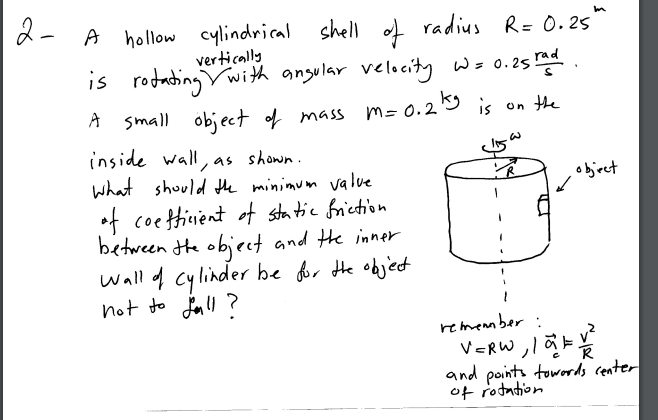 2- A hollow cylindrical shell of radius R= 0.25 m
is rotating vertically with angular velocity ω = 0.25 rad/s .
A small object of mass m= 0.2 kg is on the
inside wall, as shown.
What should the minimum value
of coefficient of static friction
between the object and the inner
wall of cylinder be for the object
not to fall ?
ω
R
object
remember :
V=Rω , |a⃗c| = v²/R
and points towards center
of rotation